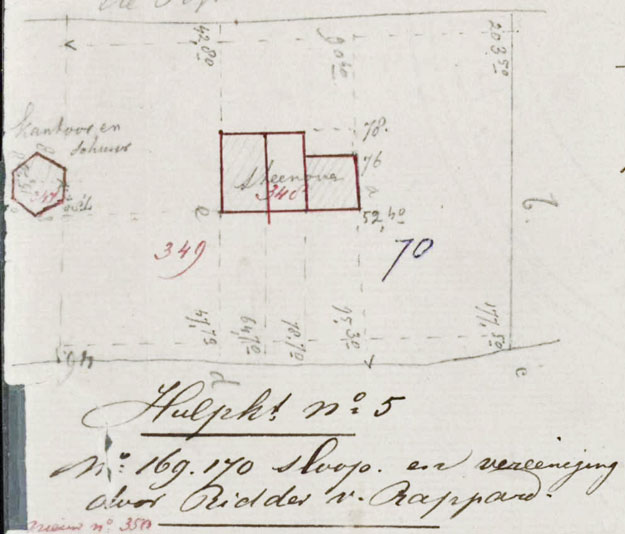 v
42,80
90,40
203,50
kantoor en
schuur
78.
76
steenoven
340
a
e
52,40
b.
349
70
47,75
64,70
78,70
95,30
177,50
d
c
Hulpkt. no. 5
No. 169.170 sloop. en vereeniging
door Ridder v. Rappard.
nieuw no. 350